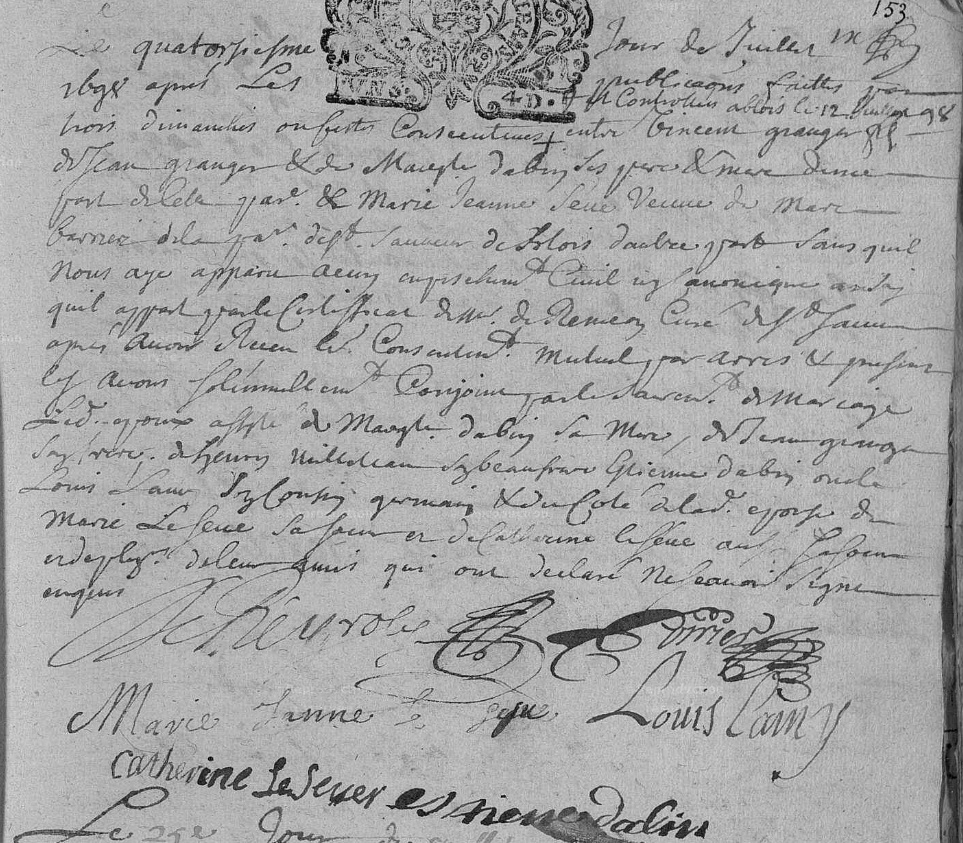 153
Le quatorsiesme Jour de Juillet
1698 après Les publicaõns faittes par
Controllées a blois le 12 Juillet 98
trois dimanches ou festes Consecutives entre Vincent granger fils
de Jean granger & de Margte dabin ses pere & mere dune
part de cette par. & Marie Jeanne Seue Veuve de Marc
barrier de la par. de St. Sauveur de Blois daultre part sans quil
Nous aye apparu aucun empeschemt Civil ny Canonique ainsy
quil appert par le Certifficat de Mr. de Remeon Curé de St Sauveur
après Avoir Receu le. Consentemt. Mutuel par &
les Avons solemnellemt Conjoint par le Sacremt. de Mariage
Led. epoux assisté de Margte. dabin sa Mere, de Jean granger
son frere, de henry Milledeau son beaufrere Estienne dabin oncle
Louis Lamy son Cousin germain & du Coté de lad. epouse de
Marie Le Seue Sa soeur et de Catherine le Seue aussy sa soeur
et de plus. de leur amis qui ont declaré Ne scavoir Signer
enquis
Poirier
Marie Janne le Seue Louis Lamy
Catherine Le Seuer estiene dabin
Le 25e Jour de